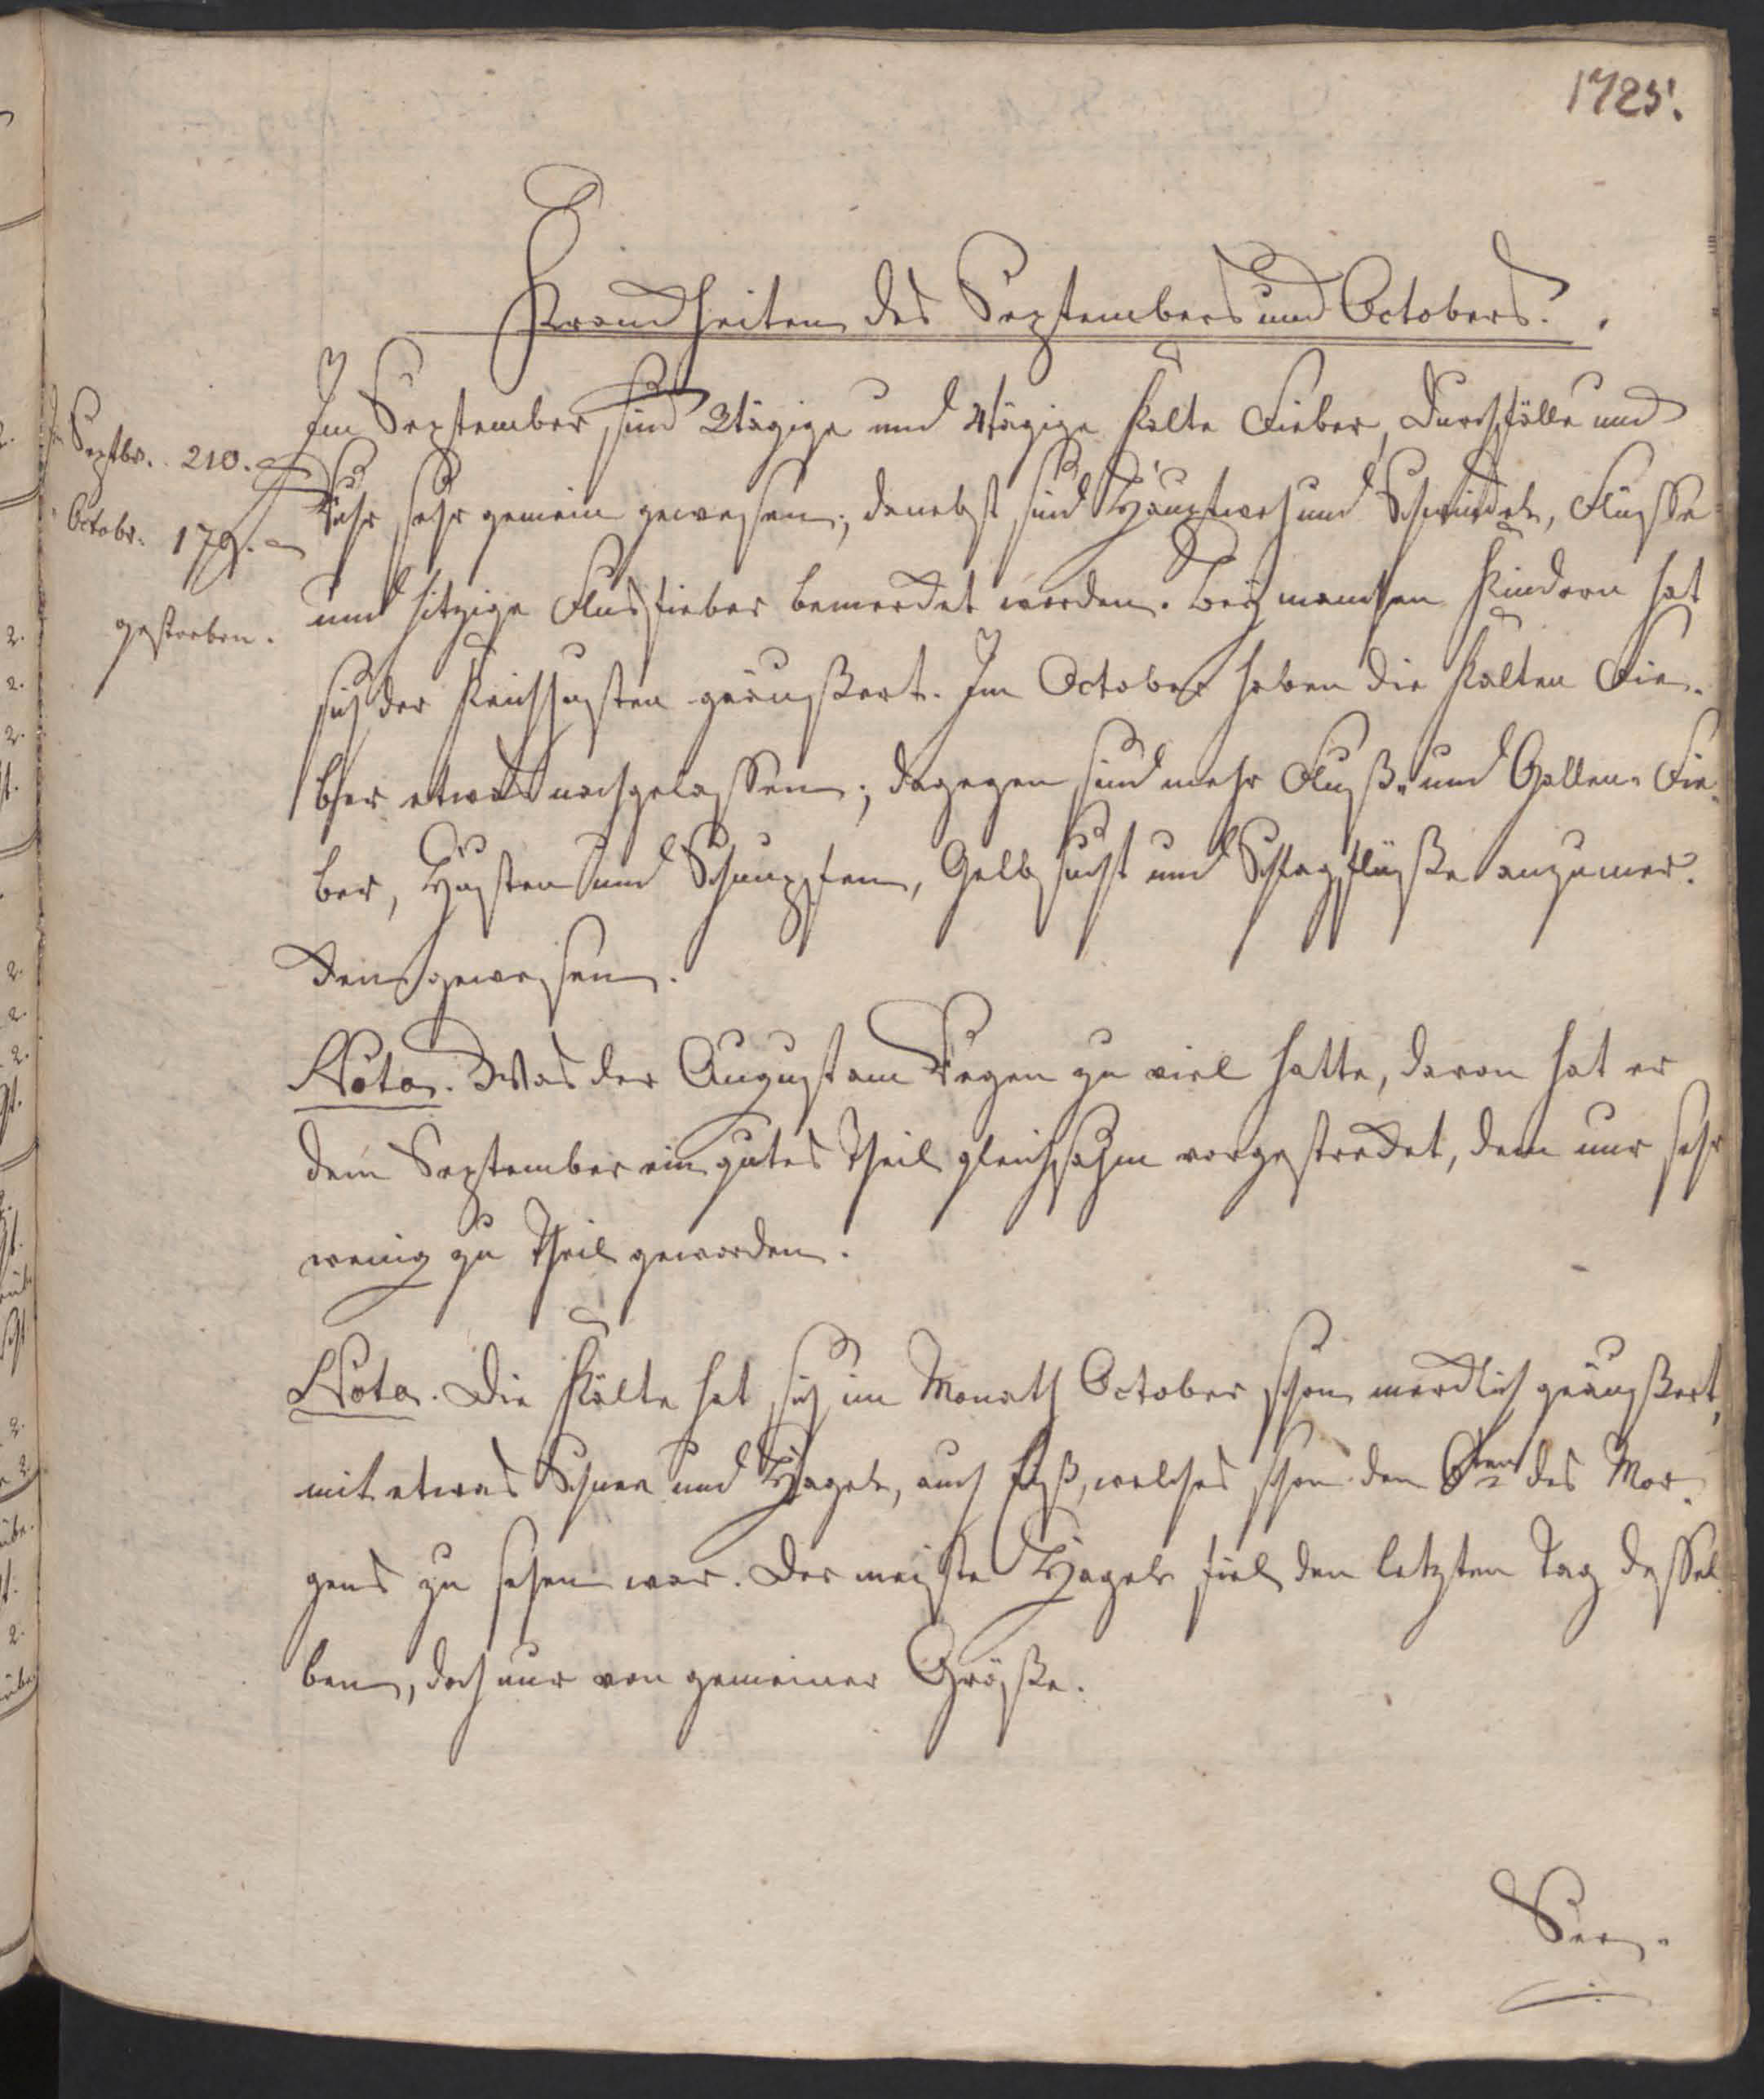 1725.
Kranckheiten des Septembers und Octobers.
Im September sind 3tägige und 4tägige kalte Fieber, Durchfälle und
Septbr. 210.
Ruhr sehr gemein gewesen; danebst sind Hauptweh und Schwindel, Flüsse
Octobr. 179.
und hitzige Flusfieber bemercket worden. Bey manchen Kindern hat
gestorben.
sich der Keichhusten geäußert. Im October haben die kalten Fie-
ber etwas nachgelassen; dagegen sind mehr Fluß- und Gallen-Fie-
ber, Husten und Schnupfen, Gelbsucht und Schlagflüße anzumer-
cken gewesen.
Nota. Was der August am Regen zu viel hatte, davon hat er
dem September ein gutes Theil gleichsahm vorgestrecket, dem nur sehr
wenig zu Theil geworden.
Nota. Die Kälte hat sich im Monath October schon mercklich geäußert,
mit etwas Schnee und Hagel, auch Eyß, welches schon den 6ten des Mor-
gens zu sehen war. Der meiste Hagel fiel den letzten Tag dessel-
ben, doch nur von gemeiner Größe.